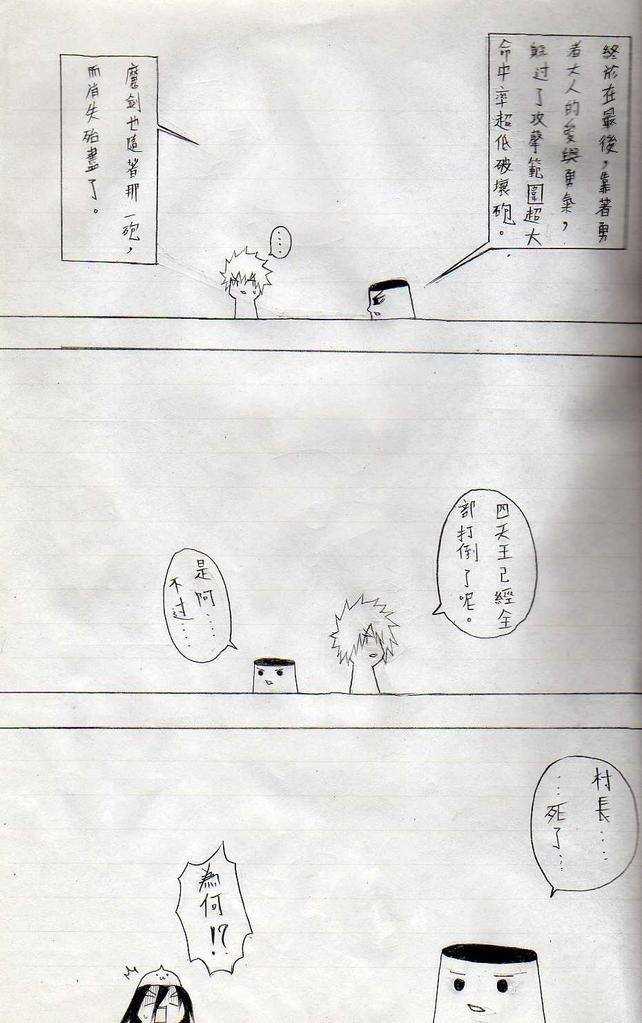 終於在最後,靠著勇
者大人的愛與勇氣,
躲过了攻擊範圍超大
命中率超低破壞砲。
....
魔劍也隨著那一砲,
而消失殆盡了。
四天王已經全
部打倒了呢。
是阿....
不过....
村長....
...死了...
為何!?